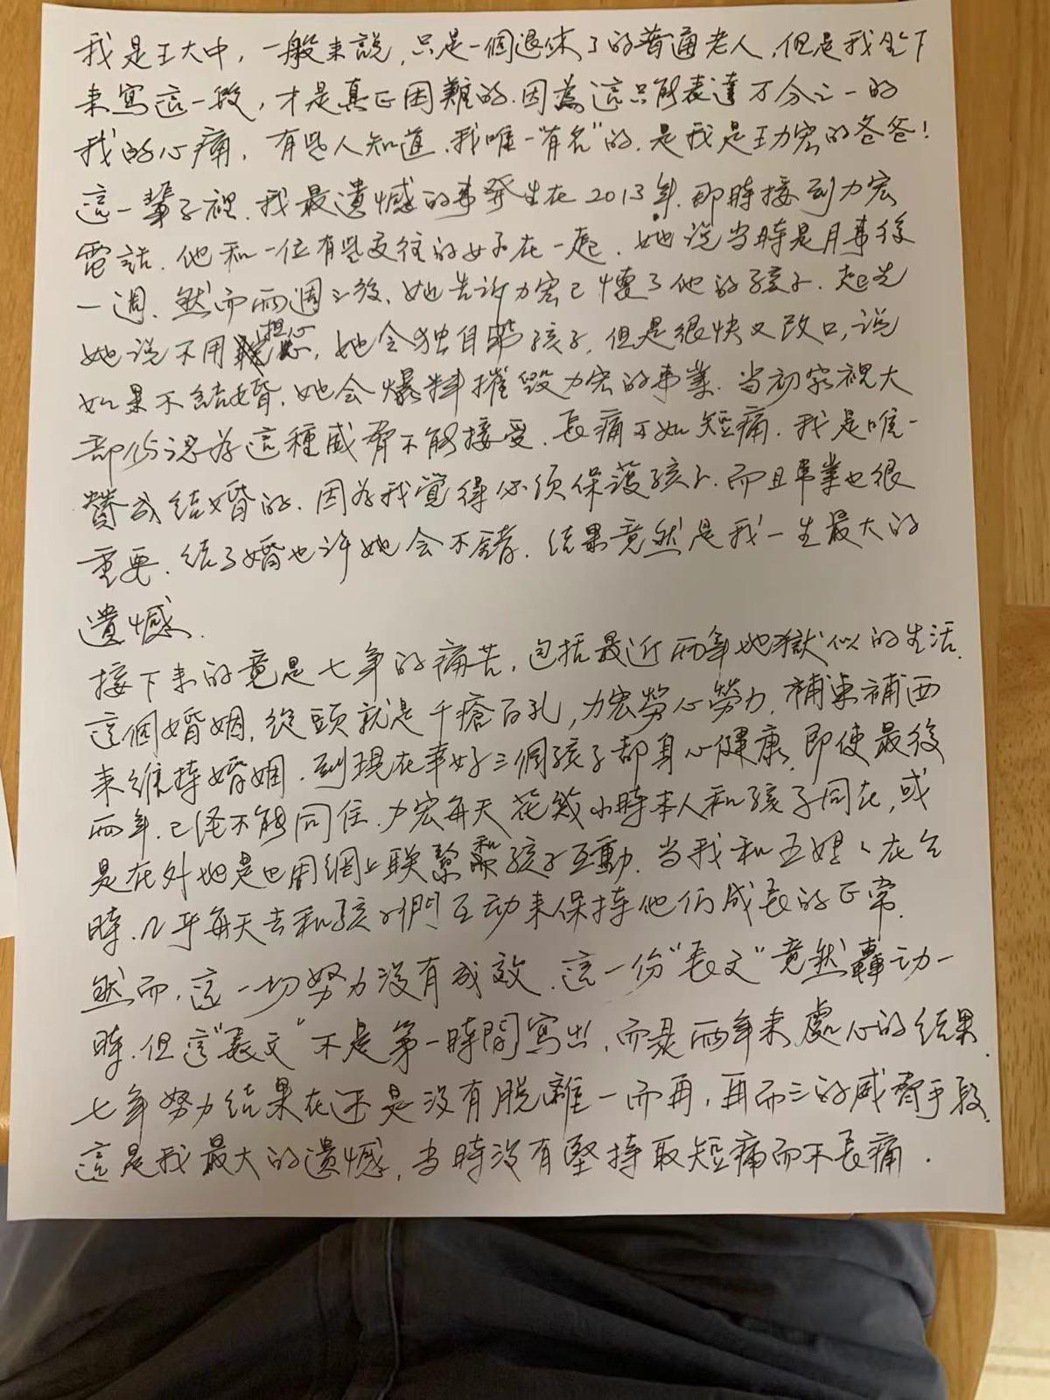 我是王大中，一般来說，只是一個退休了的普通老人，但是我坐下
来寫這一段，才是真正困難的，因為這只能表達万分之一的
我的心痛，有些人知道，我唯一"有名"的，是我是力宏的爸爸！
這一輩子裡，我最遺憾的事発生在2013年，那時接到力宏
電話，他和一位有些交往的女子在一起，她说当時是月事後
一週，然而両週之後，她告诉力宏已懷了他的孩子，起先
她说不用担心，她会独自带孩子，但是很快又改口，说
如果不结婚，她会爆料摧毁力宏的事業，当初家裡大
部份認为這種威脅不能接受，長痛不如短痛，我是唯一
贊成结婚的，因为我覚得必须保護孩子，而且事業也很
重要，结了婚也许她会不錯，结果竟然是我一生最大的
遺憾。
接下来的竟是七年的痛苦，包括最近両年地獄似的生活，
這個婚姻，從頭就是千瘡百孔，力宏劳心劳力，補東補西
来維持婚姻，到現在幸好三個孩子都身心健康，即使最後
両年，已经不能同住，力宏每天花幾小時本人和孩子同在，或
是在外地是也用網上联繫和孩子互動，当我和王媽媽在台
時，几乎每天去和孩子們互动来保持他们成長的正常，
然而，這一切努力没有成效，這一份"長文"竟然轟动一
時，但這"長文"不是第一時間写出，而是両年来處心的结果，
七年努力结果在还是没有脱離一而再，再而三的威脅手段，
這是我最大的遺憾，当時没有堅持取短痛而不長痛．